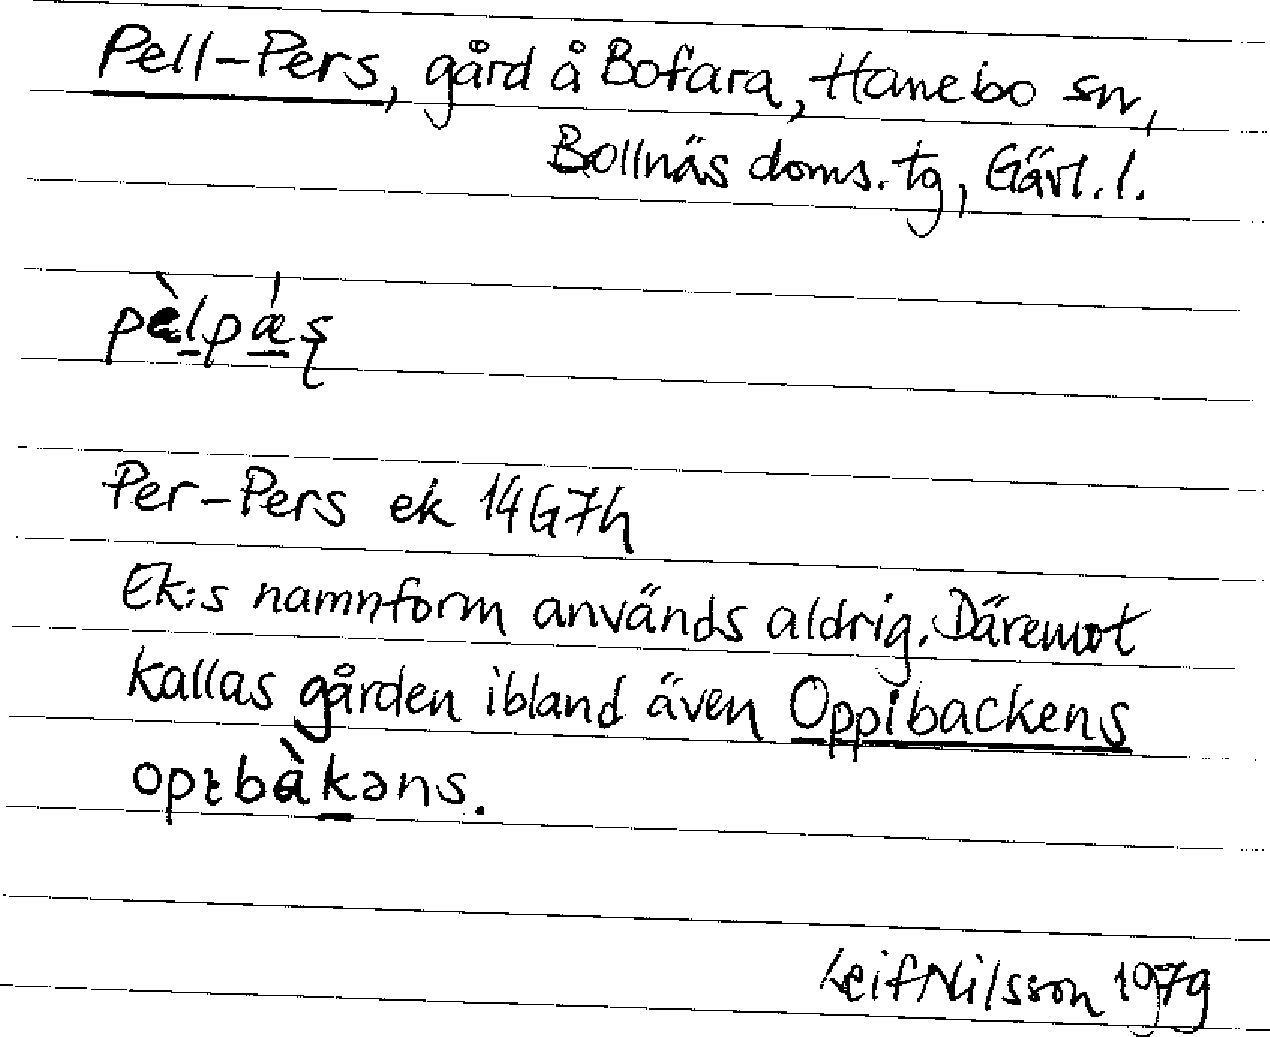 Pell-Pers, gård å Bofara, Hanebo sn,
Bollnäs doms. tg, Gävl. l.
pὲlpǽʂ
Per-Pers ek 14G7h
Ek:s namnform används aldrig. Däremot
kallas gården ibland även Oppibackens
opɩbàkəns.
Leif Nilsson 1979